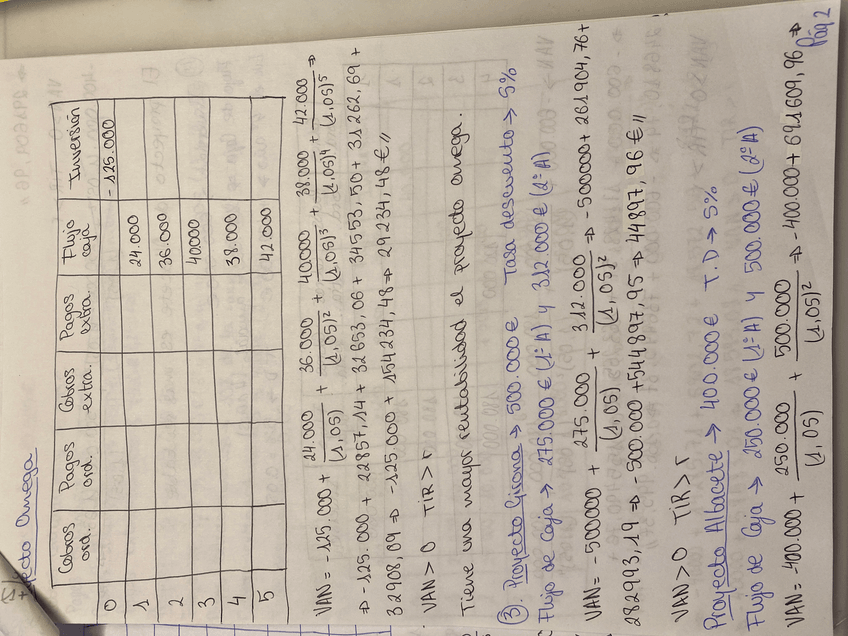 Proyecto Omega
Cobros ord. Pagos ord. Cobros extra. Pagos extra. Flujo caja Inversión
0 -125.000
1 24.000
2 36.000
3 40000
4 38.000
5 42.000
VAN = -125.000 + 24.000/(1,05) + 36.000/(1,05)² + 40000/(1,05)³ + 38.000/(1,05)⁴ + 42.000/(1,05)⁵ ⇒
⇒ -125.000 + 22857,14 + 32653,06 + 34553,50 + 31262,69 +
32908,09 ⇒ -125.000 + 154234,48 ⇒ 29234,48 € //
VAN > 0 TIR > r
Tiene una mayor rentabilidad el proyecto omega.
③. Proyecto Girona → 500.000 € Tasa descuento → 5%
Flujo de Caja → 275.000 € (1º A) y 312.000 € (2º A)
VAN = -500000 + 275.000/(1,05) + 312.000/(1,05)² ⇒ -500000 + 261904,76 +
282993,19 ⇒ -500.000 + 544897,95 ⇒ 44897,96 € //
VAN > 0 TIR > r
Proyecto Albacete → 400.000 € T.D → 5%
Flujo de Caja → 250.000 € (1º A) y 500.000 € (2º A)
VAN = -400.000 + 250.000/(1,05) + 500.000/(1,05)² ⇒ -400.000 + 691609,96 ⇒
Pág 2